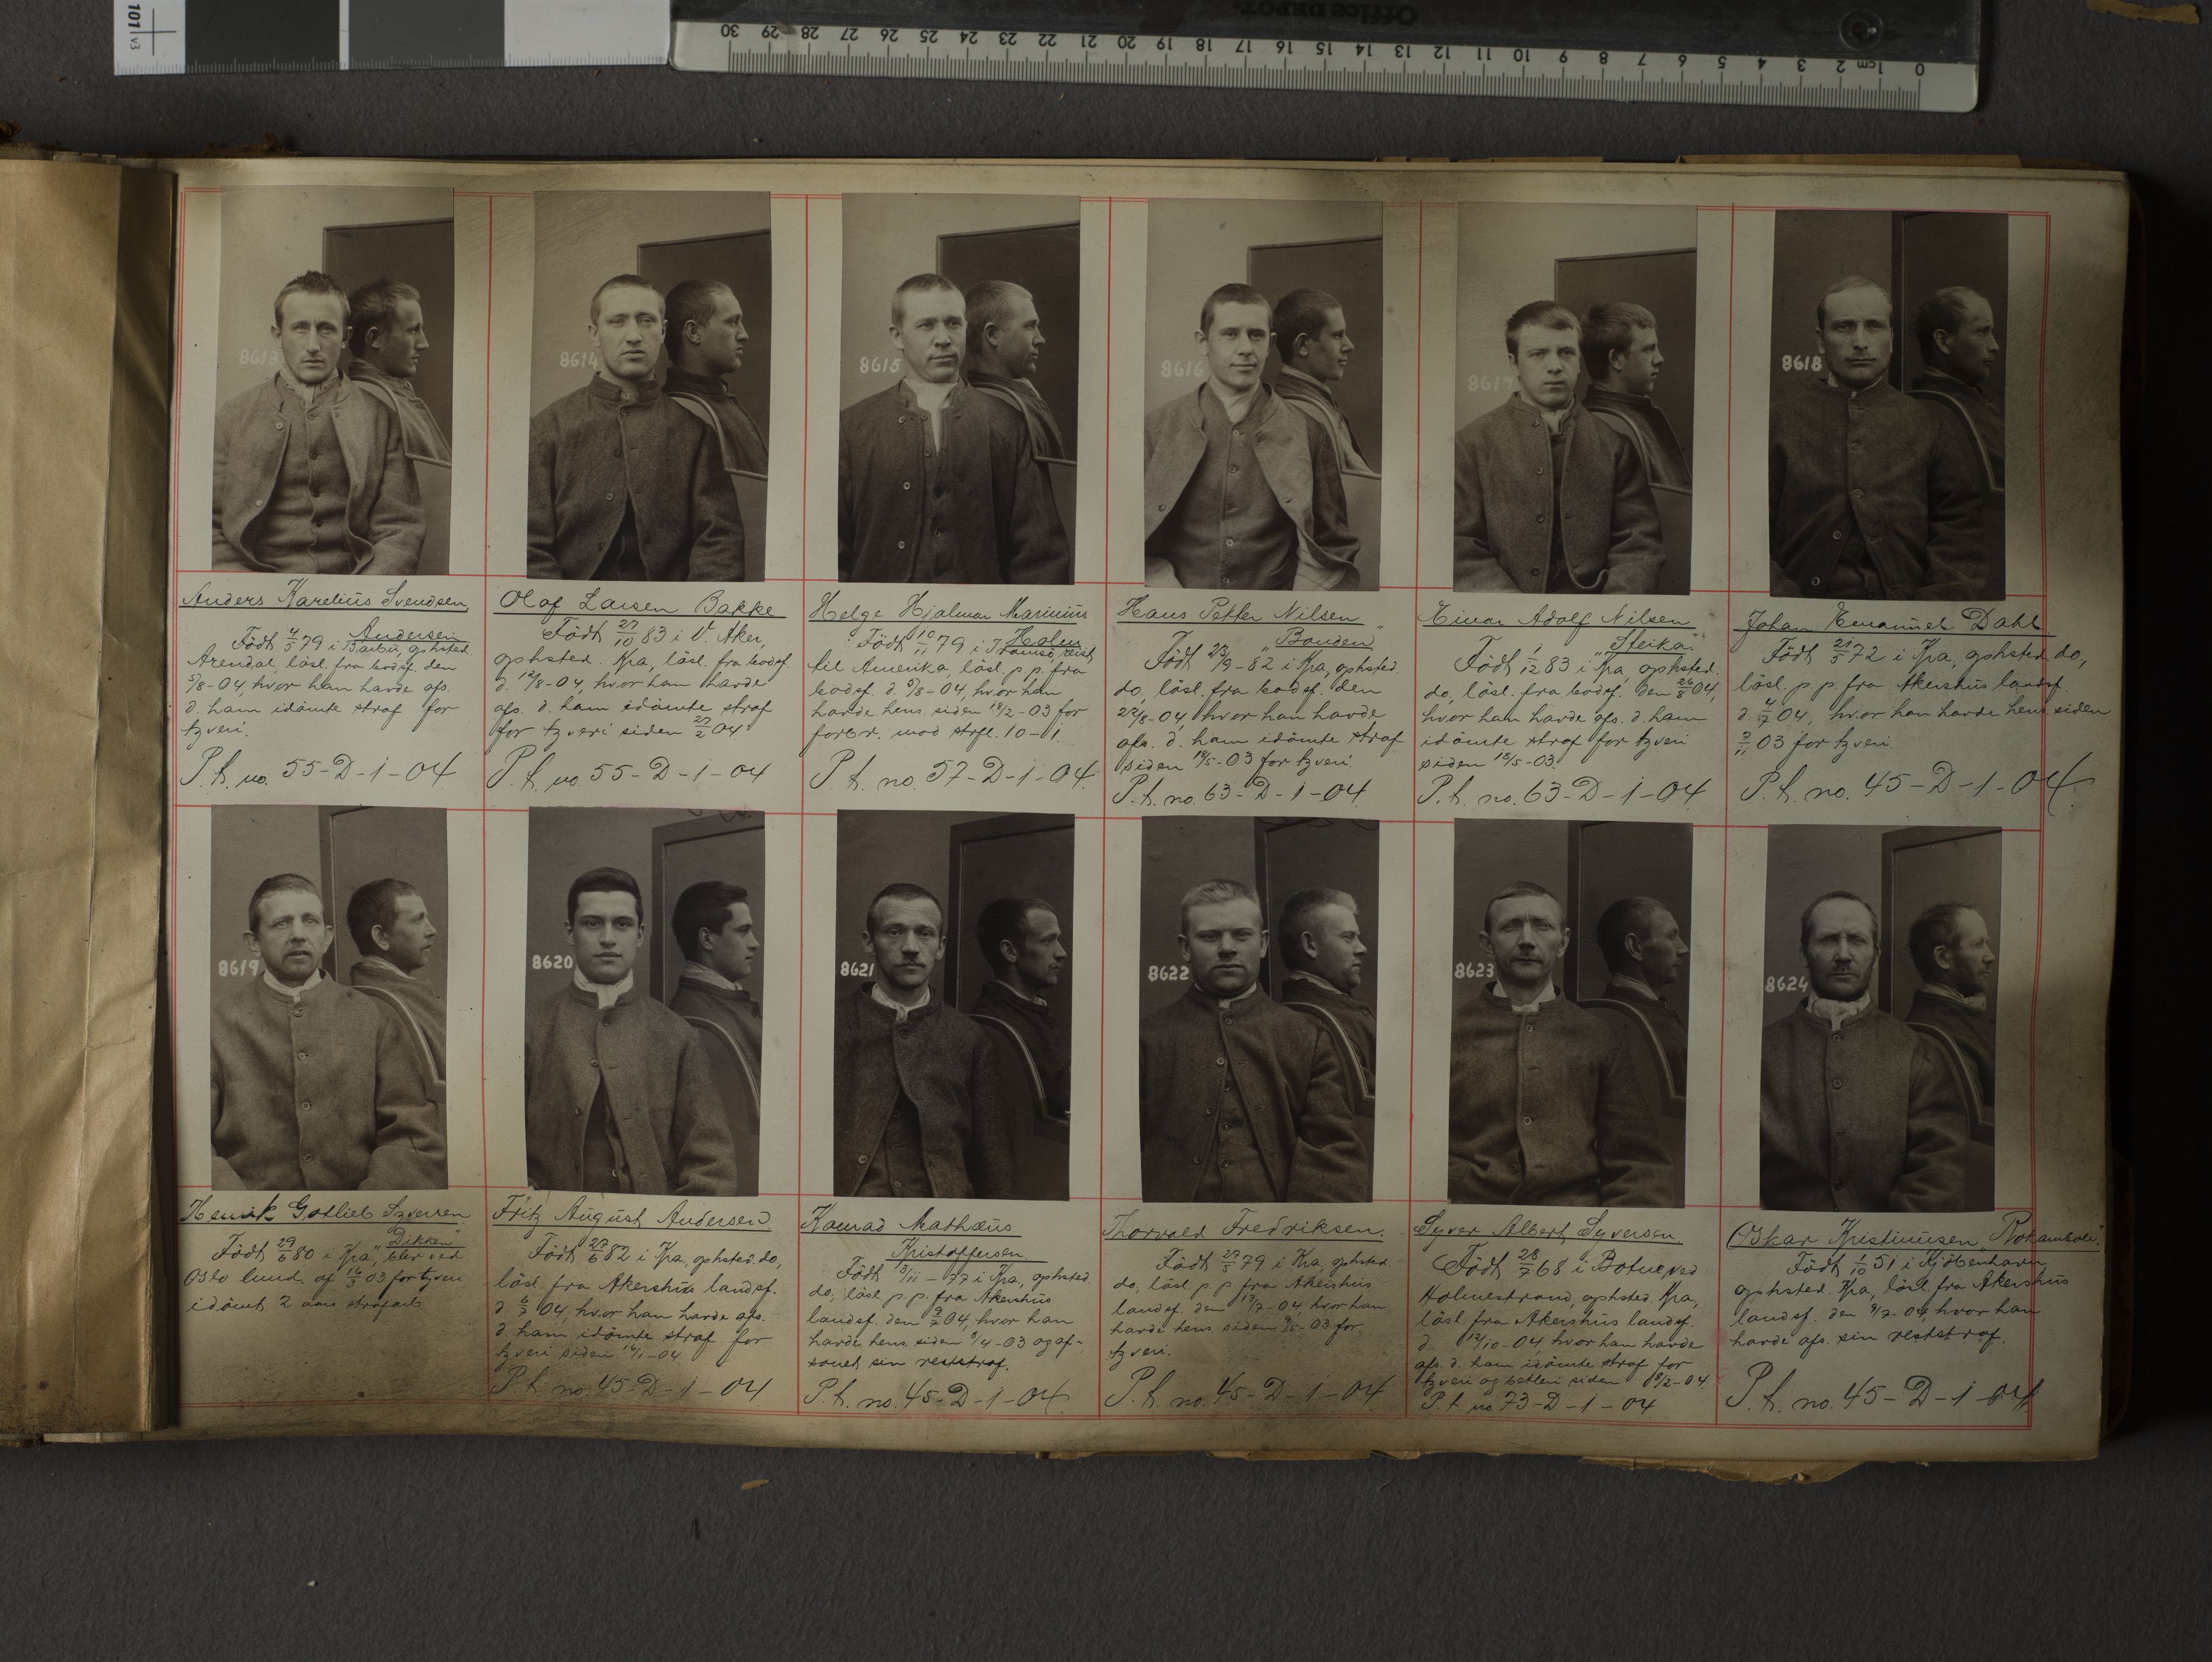 101 v3
Office DEPOT
0 1cm 2 3 4 5 6 7 8 9 10 11 12 13 14 15 16 17 18 19 20 21 22 23 24 25 26 27 28 29 30
8613
Anders Karelius Svendsen
Andersen
Födt 4/5 79 i Barbu, ophsted.
Arendal, løsl. fra bodsf. den
5/8-04, hvor han havde afs.
d. ham idömte straf for
tyveri.
P.h. no. 55-D-1-04.
8614
Olaf Larsen Bakke
Födt 27/10 83 i V. Aker,
ophsted. Kra, løsl. fra bodsf.
d. 12/8-04, hvor han havde
afs. d. ham idömte straf
for tyveri siden 27/2 04
P.h. no 55-D-1-04
8615
Helge Hjalmar Marinius
Holm
Födt 10/11 79 i Tromsö, reist
til Amerika, løsl. p.p. fra
bodsf. d. 9/8-04, hvor han
havde hens. siden 18/2-03 for
forbr. mod strfl. 10-1.
P.h. no. 57-D-1-04.
8616
Hans Petter Nilsen
"Bonden"
Födt 23/9-82 i Kra, ophsted.
do, løsl. fra bodsf. den
22/8-04, hvor han havde
afs. d. ham idömte straf
siden 18/5-03 for tyveri.
P.h. no. 63-D-1-04.
8617
Einar Adolf Nilsen
"Steika"
Födt 1/12 83 i Kra, ophsted.
do, løsl. fra bodsf. den 26/8 04,
hvor han havde afs. d. ham
idömte straf for tyveri
siden 15/5-03.
P.h. no. 63-D-1-04
8618
Johan Emanuel Dahl
Födt 21/5 72 i Kra, ophsted. do,
løsl. p.p. fra Akershus landsf.
d. 4/7 04, hvor han havde hens siden
3/11 03 for tyveri.
P.h. no. 45-D-1-04.
8619
Henrik Gotlieb Syversen
"Dikken"
Födt 29/6 80 i Kra, blev ved
Oslo lmd. af 16/5 03 for tyveri
idömt 2 aars strafarb.
8620
Fritz August Andersen.
Födt 27/6 82 i Kra, ophsted. do,
løsl. fra Akershus landsf.
d. 6/7 04, hvor han havde afs.
d. ham idömte straf for
tyveri siden 16/1-04.
P.h. no. 45-D-1-04.
8621
Konrad Mathæus
Kristoffersen.
Födt 13/11-77 i Kra, ophsted.
do, løsl. p.p. fra Akershus
landsf. den 9/7 04, hvor han
havde hens. siden 8/4-03 og af-
sonet sin reststraf.
P.h. no. 45-D-1-04
8622
Thorvald Fredriksen.
Födt 27/5 79 i Kra, ophsted.
do, løsl. p.p. fra Akershus
landsf. den 13/7-04, hvor han
havde hens. siden 9/5-03 for
tyveri.
P.h. no. 45-D-1-04
8623
Syver Albert Syversen.
Födt 28/7 68 i Botne ved
Holmestrand, ophsted. Kra,
løsl. fra Akershus landsf.
d. 12/10-04, hvor han havde
afs. d. ham idömte straf for
tyveri og betleri siden 18/2-04.
P.h. no 73-D-1-04
8624
Oskar Kristinusen "Rokambole".
Födt 1/10 51 i Kjöbenhavn,
ophsted. Kra, løsl. fra Akershus
landsf. den 9/7-04, hvor han
havde afs. sin reststraf.
P.h. no. 45-D-1-04.